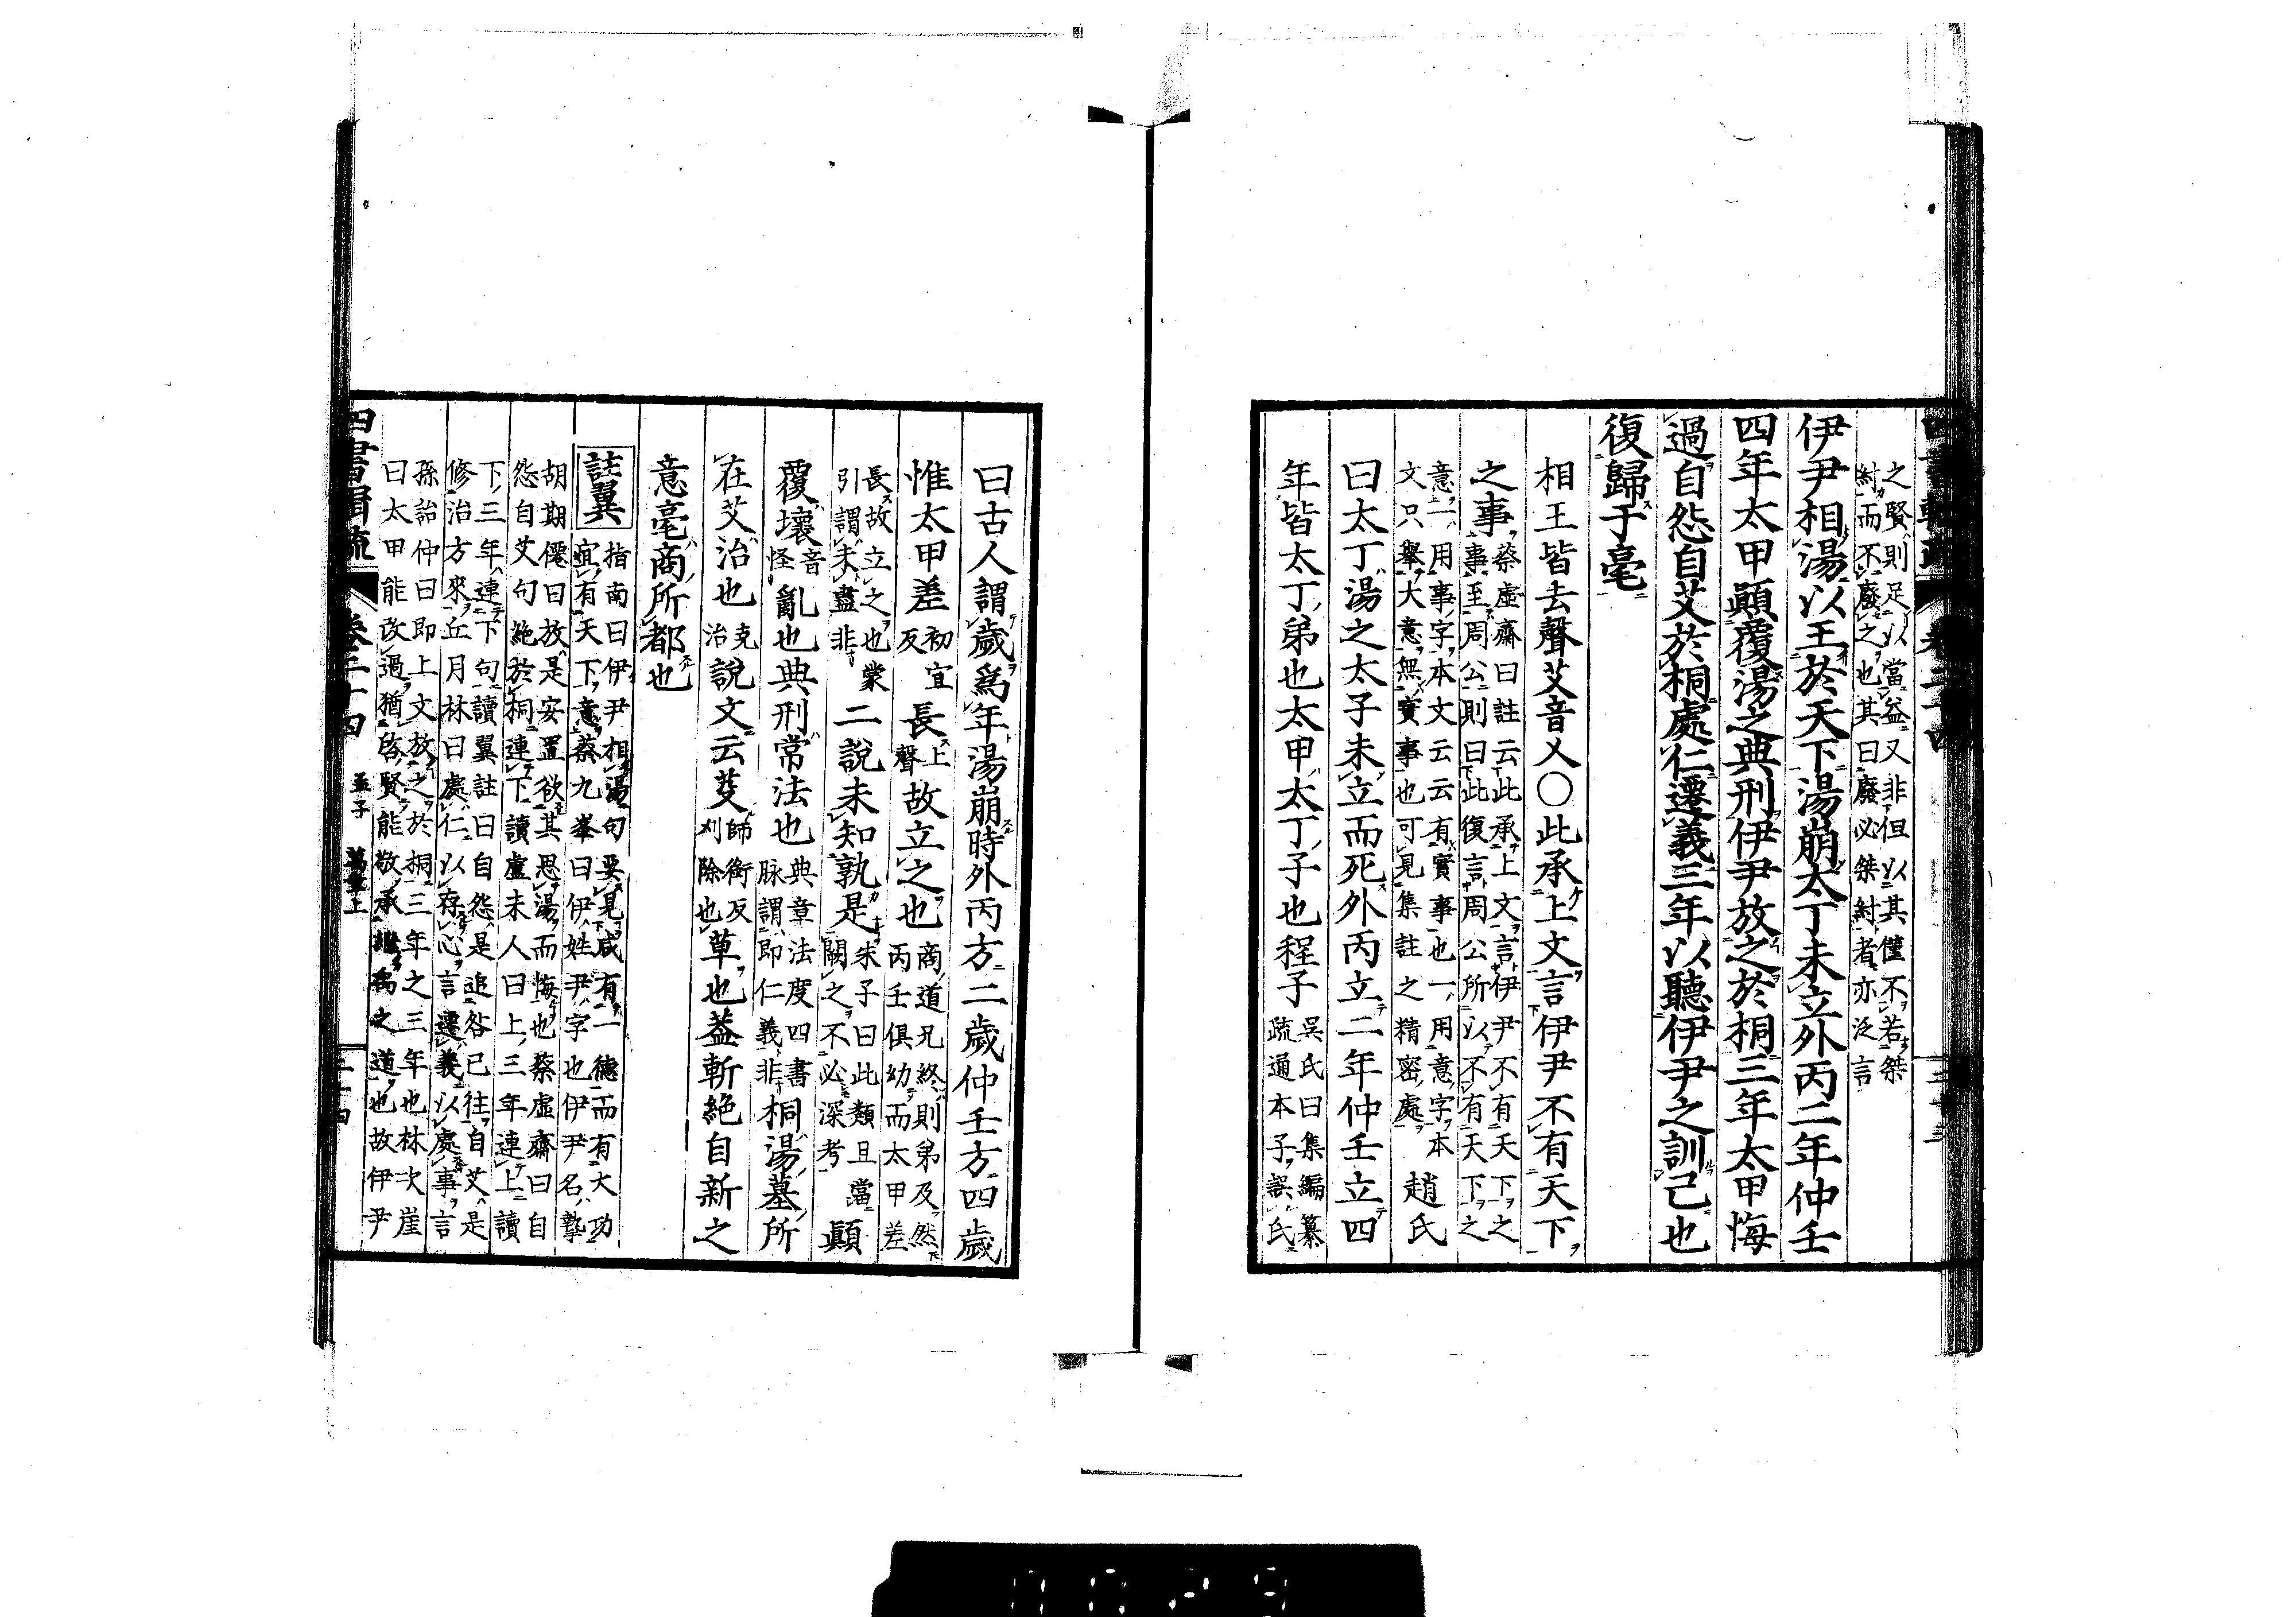 之賢則足以當益又非但以其僅不若桀
紂而不廢之也其曰廢必桀紂者亦泛言
伊尹相湯以王於天下湯崩太丁未立外丙二年仲壬
四年太甲顚覆湯之典刑伊尹放之於桐三年太甲悔
過自怨自艾於桐處仁遷義三年以聽伊尹之訓己也
復歸于亳
相王皆去聲艾音乂〇此承上文言伊尹不有天下
之事蔡虛齋曰註云此承上文言伊尹不有天下之
事至周公則曰此復言周公所以不有天下之
意一用事字本文云云有實事也一用意字本
文只舉大意無實事也可見集註之精密處趙氏
曰太丁湯之太子未立而死外丙立二年仲壬立四
年皆太丁弟也太甲太丁子也程子吳氏曰集編纂
疏通本子誤氏
曰古人謂歲爲年湯崩時外丙方二歲仲壬方四歲
惟太甲差初宜反長上聲故立之也商道兄終則弟及然
丙壬俱幼而太甲差
長故立之也蒙
引謂未盡非二說未知孰是朱子曰此類且當
闕之不必深考顚
覆壞音怪亂也典刑常法也典章法度四書
脉謂即仁義非桐湯墓所
在艾治也克治說文云芟師銜反
刈除也草也蓋斬絶自新之
意亳商所都也
註翼指南曰伊尹相湯句要見咸有一德而有大功
宜有天下意蔡九峯曰伊姓尹字也伊尹名摯
胡期僊曰放是安置欲其思湯而悔也蔡虛齋曰自
怨自艾句絶於桐連下讀盧未人曰上三年連上讀
下三年連下句讀翼註曰自怨是追咎已往自艾是
修治方來丘月林曰處仁以存心言遷義以處事言
孫詒仲曰即上文放之於桐三年之三年也林次崖
曰太甲能改過猶啓賢能敬承繼禹之道也故伊尹
四書輯疏 卷二十四 孟子 萬章上 二十四